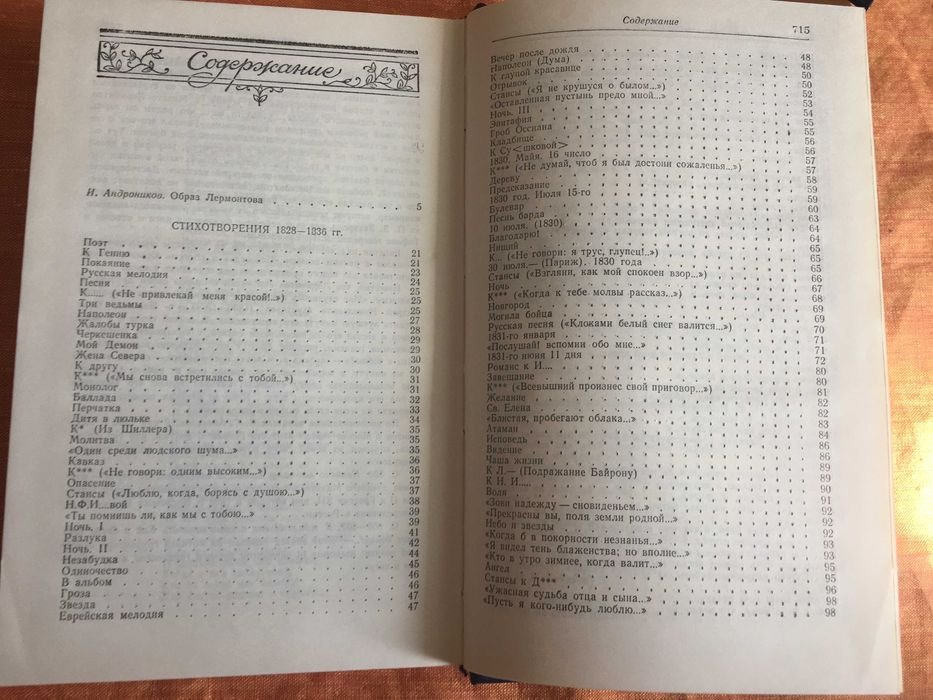 Содержание
И. Андроников. Образ Лермонтова . . . 5
СТИХОТВОРЕНИЯ 1828—1836 гг.
Поэт . . . 21
К Гению . . . 21
Покаяние . . . 23
Русская мелодия . . . 24
Песня . . . 25
К..... («Не привлекай меня красой!..») . . . 25
Три ведьмы . . . 25
Наполеон . . . 27
Жалобы турка . . . 28
Черкешенка . . . 29
Мой Демон . . . 29
Жена Севера . . . 30
К другу . . . 30
К*** («Мы снова встретились с тобой...») . . . 31
Монолог . . . 31
Баллада . . . 32
Перчатка . . . 33
Дитя в люльке . . . 34
К* (Из Шиллера) . . . 35
Молитва . . . 35
«Один среди людского шума...» . . . 35
Кавказ . . . 36
К*** («Не говори: одним высоким...») . . . 36
Опасение . . . 37
Стансы («Люблю, когда, борясь с душою...») . . . 37
Н.Ф.И....вой . . . 38
«Ты помнишь ли, как мы с тобою...» . . . 39
Ночь. I . . . 39
Разлука . . . 41
Ночь. II . . . 42
Незабудка . . . 44
Одиночество . . . 45
В альбом . . . 46
Гроза . . . 46
Звезда . . . 47
Еврейская мелодия . . . 47
Содержание 715
Вечер после дождя . . . 48
Наполеон (Дума) . . . 48
К глупой красавице . . . 50
Отрывок . . . 50
Стансы («Я не крушуся о былом...») . . . 52
«Оставленная пустынь предо мной...» . . . 53
Ночь. III . . . 54
Эпитафия . . . 55
Гроб Оссиана . . . 55
Кладбище . . . 56
К Су<шковой> . . . 56
1830. Майя. 16 число . . . 57
К*** («Не думай, чтоб я был достоин сожаленья...») . . . 57
Дереву . . . 58
Предсказание . . . 59
1830 год. Июля 15-го . . . 59
Булевар . . . 60
Песнь барда . . . 63
10 июля. (1830) . . . 64
Благодарю! . . . 64
Нищий . . . 65
К... («Не говори: я трус, глупец!..») . . . 65
30 июля.— (Париж). 1830 года . . . 65
Стансы («Взгляни, как мой спокоен взор...») . . . 66
Ночь . . . 67
К*** («Когда к тебе молвы рассказ..») . . . 68
Новгород . . . 69
Могила бойца . . . 69
Русская песня («Клоками белый снег валится...») . . . 70
1831-го января . . . 71
«Послушай! вспомни обо мне...» . . . 71
1831-го июня 11 дня . . . 72
Романс к И.... . . . 80
Завещание . . . 80
К*** («Всевышний произнес свой приговор...») . . . 81
Желание . . . 82
Св. Елена . . . 82
«Блистая, пробегают облака...» . . . 83
Атаман . . . 84
Исповедь . . . 86
Видение . . . 86
Чаша жизни . . . 89
К Л.— (Подражание Байрону) . . . 89
К Н. И..... . . . 90
Воля . . . 91
«Зови надежду — сновиденьем...» . . . 92
«Прекрасны вы, поля земли родной...» . . . 92
Небо и звезды . . . 92
«Когда б в покорности незнанья...» . . . 93
«Я видел тень блаженства; но вполне...» . . . 93
«Кто в утро зимнее, когда валит...» . . . 95
Ангел . . . 95
Стансы к Д*** . . . 96
«Ужасная судьба отца и сына...» . . . 98
«Пусть я кого-нибудь люблю...» . . . 98